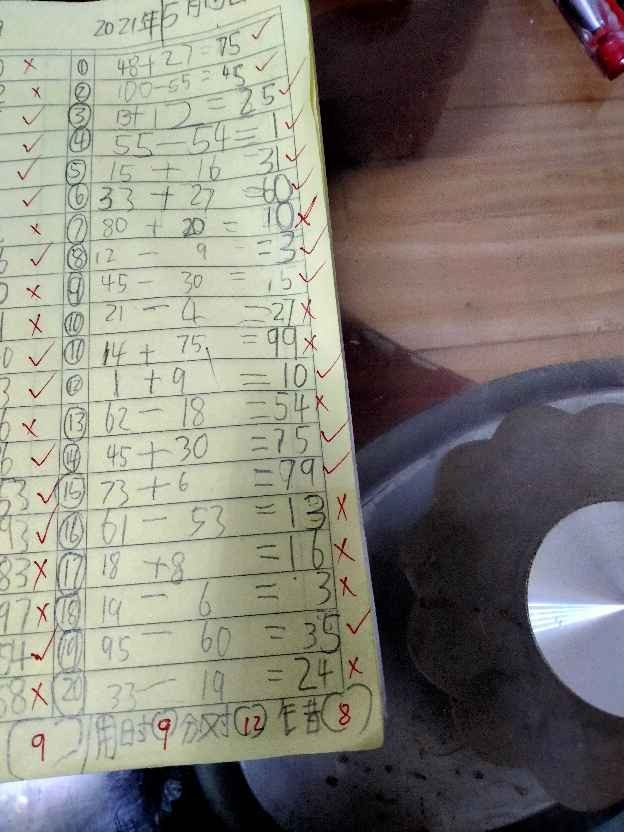 2021年5月
✗ ① 48+27=75 ✓
✗ ② 100-55=45 ✓
✓ ③ 13+12=25 ✓
✓ ④ 55-54=1 ✓
✓ ⑤ 15+16 31 ✓
✓ ⑥ 33+27=60 ✓
✗ ⑦ 80+20=10 ✗
✓ ⑧ 12-9=3 ✓
✗ ⑨ 45-30=15 ✓
✗ ⑩ 21-4=27 ✗
✓ ⑪ 14+75=99 ✗
✓ ⑫ 1+9=10 ✓
✗ ⑬ 62-18=54 ✗
✓ ⑭ 45+30=75 ✓
53 ✓ ⑮ 73+6=79 ✓
93 ✓ ⑯ 61-53=13 ✗
83 ✗ ⑰ 18+8=16 ✗
97 ✗ ⑱ 19-6=3 ✗
54 ✓ ⑲ 95-60=35 ✓
58 ✗ ⑳ 33-19=24 ✗
(9) 用时9分对12 错8